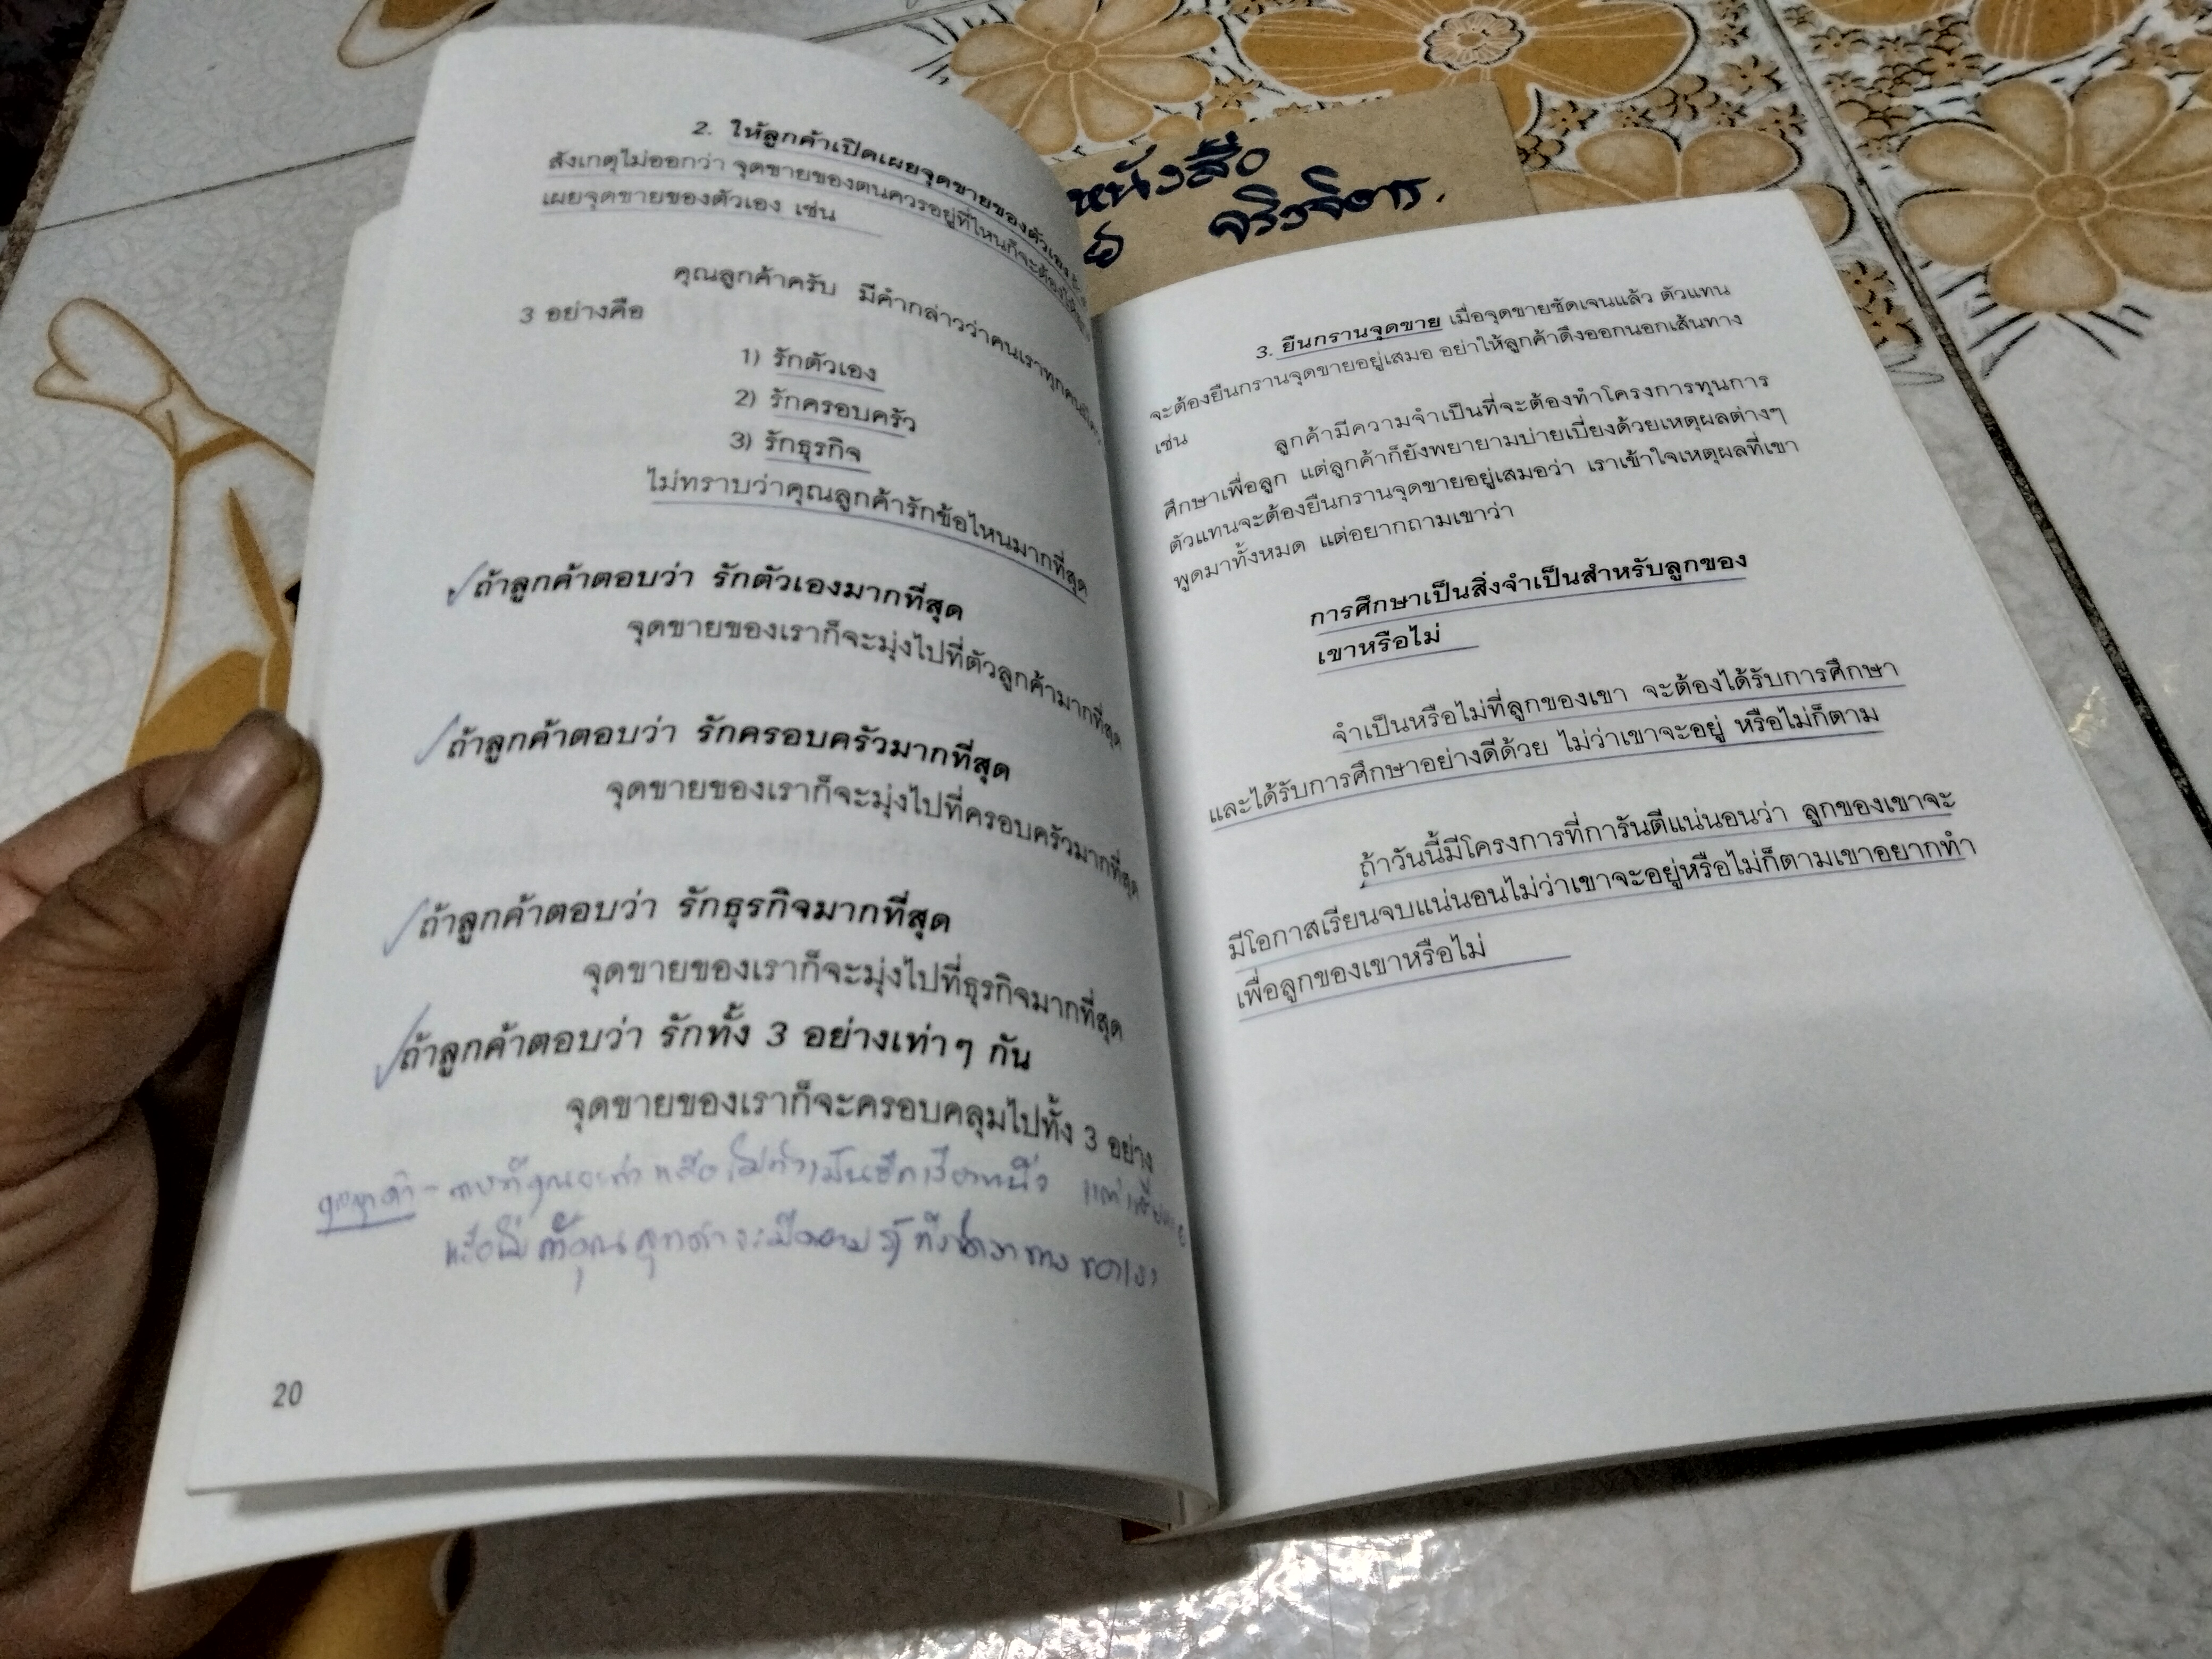 2. ให้ลูกค้าเปิดเผยจุดขายของตัวเอง
สังเกตุไม่ออกว่า จุดขายของตนควรอยู่ที่ไหนก็จะต้องให้
เผยจุดขายของตัวเอง เช่น
คุณลูกค้าครับ มีคำกล่าวว่าคนเราทุกคน
3 อย่างคือ
1) รักตัวเอง
2) รักครอบครัว
3) รักธุรกิจ
ไม่ทราบว่าคุณลูกค้ารักข้อไหนมากที่สุด
ถ้าลูกค้าตอบว่า รักตัวเองมากที่สุด
จุดขายของเราก็จะมุ่งไปที่ตัวลูกค้ามากที่สุด
ถ้าลูกค้าตอบว่า รักครอบครัวมากที่สุด
จุดขายของเราก็จะมุ่งไปที่ครอบครัวมากที่สุด
ถ้าลูกค้าตอบว่า รักธุรกิจมากที่สุด
จุดขายของเราก็จะมุ่งไปที่ธุรกิจมากที่สุด
ถ้าลูกค้าตอบว่า รักทั้ง 3 อย่างเท่าๆ กัน
จุดขายของเราก็จะครอบคลุมไปทั้ง 3 อย่าง
20
หนังสือ
3. ยืนกรานจุดขาย เมื่อจุดขายชัดเจนแล้ว ตัวแทน
จะต้องยืนกรานจุดขายอยู่เสมอ อย่าให้ลูกค้าดึงออกนอกเส้นทาง
เช่น
ลูกค้ามีความจำเป็นที่จะต้องทำโครงการทุนการ
ศึกษาเพื่อลูก แต่ลูกค้าก็ยังพยายามบ่ายเบี่ยงด้วยเหตุผลต่างๆ
ตัวแทนจะต้องยืนกรานจุดขายอยู่เสมอว่า เราเข้าใจเหตุผลที่เขา
พูดมาทั้งหมด แต่อยากถามเขาว่า
การศึกษาเป็นสิ่งจำเป็นสำหรับลูกของ
เขาหรือไม่
จำเป็นหรือไม่ที่ลูกของเขา จะต้องได้รับการศึกษา
และได้รับการศึกษาอย่างดีด้วย ไม่ว่าเขาจะอยู่ หรือไม่ก็ตาม
ถ้าวันนี้มีโครงการที่การันตีแน่นอนว่า ลูกของเขาจะ
มีโอกาสเรียนจบแน่นอนไม่ว่าเขาจะอยู่หรือไม่ก็ตามเขาอยากทำ
เพื่อลูกของเขาหรือไม่